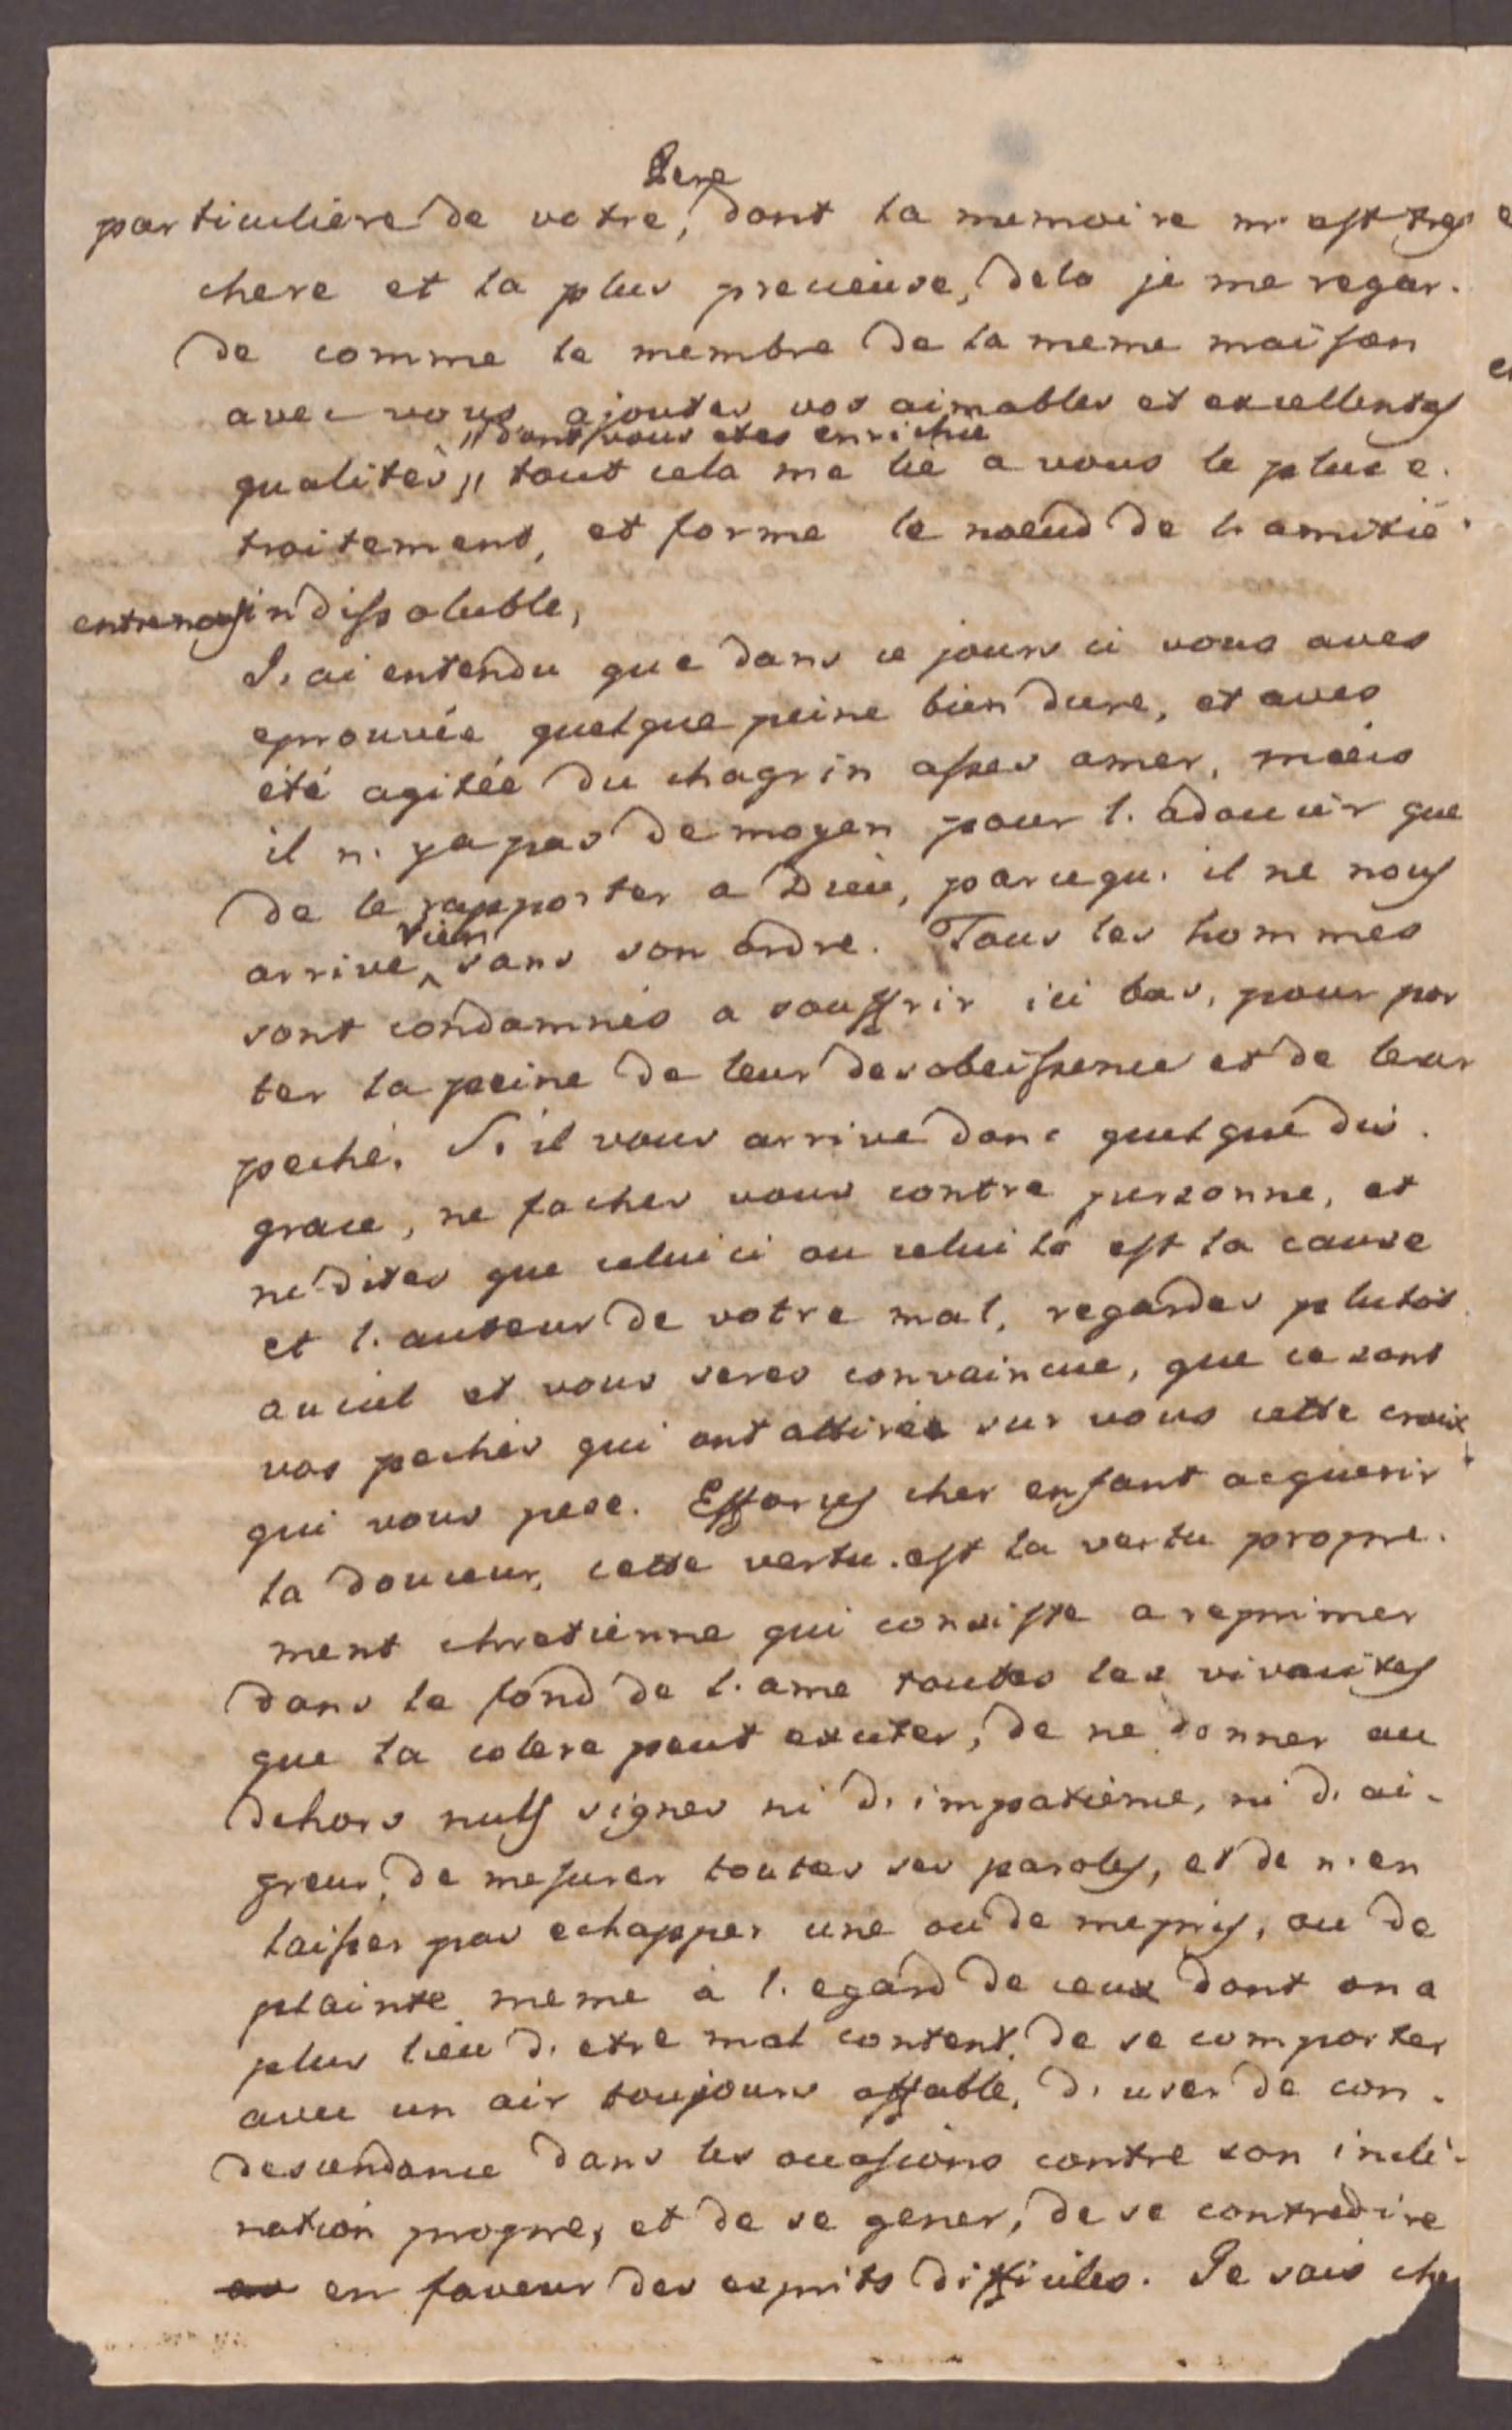 Pere
particuliere de votre, dont la memoire m. est tres
chere et la plus precieuse, dela je me regar.
de comme le membre de la meme maison
avec vous ajoutes vos aimables et excellentes
" dont vous etes enrichie
qualites " tout cela me lie a vous le plus e.
troitement, et forme le noeud de l. amitié
entre nous indissoluble,
J. ai entendu que dans ce jours ci vous aves
eprouvée quelque peine bien dure, et aves
été agitée du chagrin asses amer, mais
il n. ya pas de moyen pour l. adoucir que
de le rapporter a Dieu, parcequ. il ne nous
rien
arrive ^ sans son ordre. Tous les hommes
sont condamnés a souffrir ici bas, pour por
ter la peine de leur desobeissence et de leur
peché. S. il vous arrive donc quelque dis.
grace, ne faches vous contre personne, et
ne dites que celui ci ou celui la est la cause
et l. auteur de votre mal, regardes plutot
au ciel et vous seres convaincue, que ce sont
vos pechés qui ont attirée sur vous cette croix
qui vous pese. Efforces cher enfant acquerir
la douceur, cette vertu. est la vertu propre.
ment chretienne qui consiste a reprimer
dans le fond de l. ame toutes les vivacites
que la colere peut exciter, de ne donner au
dehors nuls signes ni d. impatience, ni d. ai.
greur, de mesurer toutes ses paroles, et de n. en
laisser pas echapper une ou de mepris, ou de
plainte meme à l. egard de ceux dont on a
plus lieu d. etre mal content, de se comporter
avec un air toujours affable, d. user de con.
descendance dans les occasions contre son incli.
nation propre, et de se gener, de se contredire
en faveur des esprits difficiles. Je sais cher